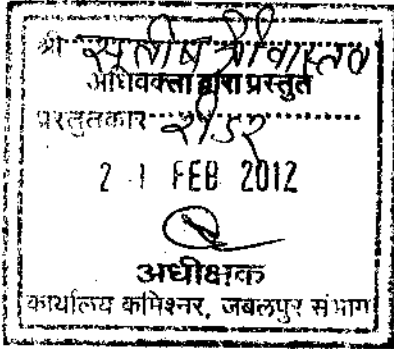 श्री सतीष श्रीवास्तव
अधिवक्ता द्वारा प्रस्तुत
प्रस्तुतकार रीडर
2 1 FEB 2012
अधीक्षक
कार्यालय कमिश्नर, जबलपुर संभाग